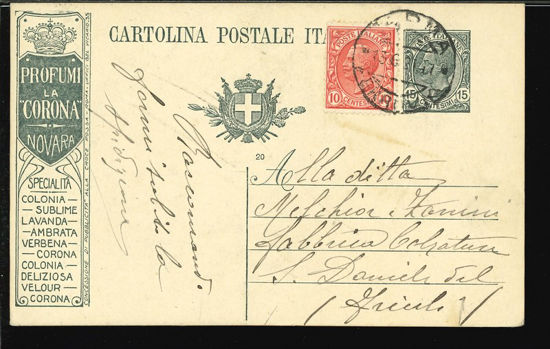 CARTOLINA POSTALE ITA
PROFUMI
LA
"CORONA"
NOVARA
SPECIALITÀ
COLONIA
SUBLIME
LAVANDA
AMBRATA
VERBENA
CORONA
COLONIA
DELIZIOSA
VELOUR
CORONA
POSTE ITALIANE
10 CENTESIMI
15 CENTESIMI 15
20
Raccomand.
fornirsubito la
spedizione
Alla ditta
Melchior Zannini
fabbrica Calzature
S. Daniele del
(Friuli)